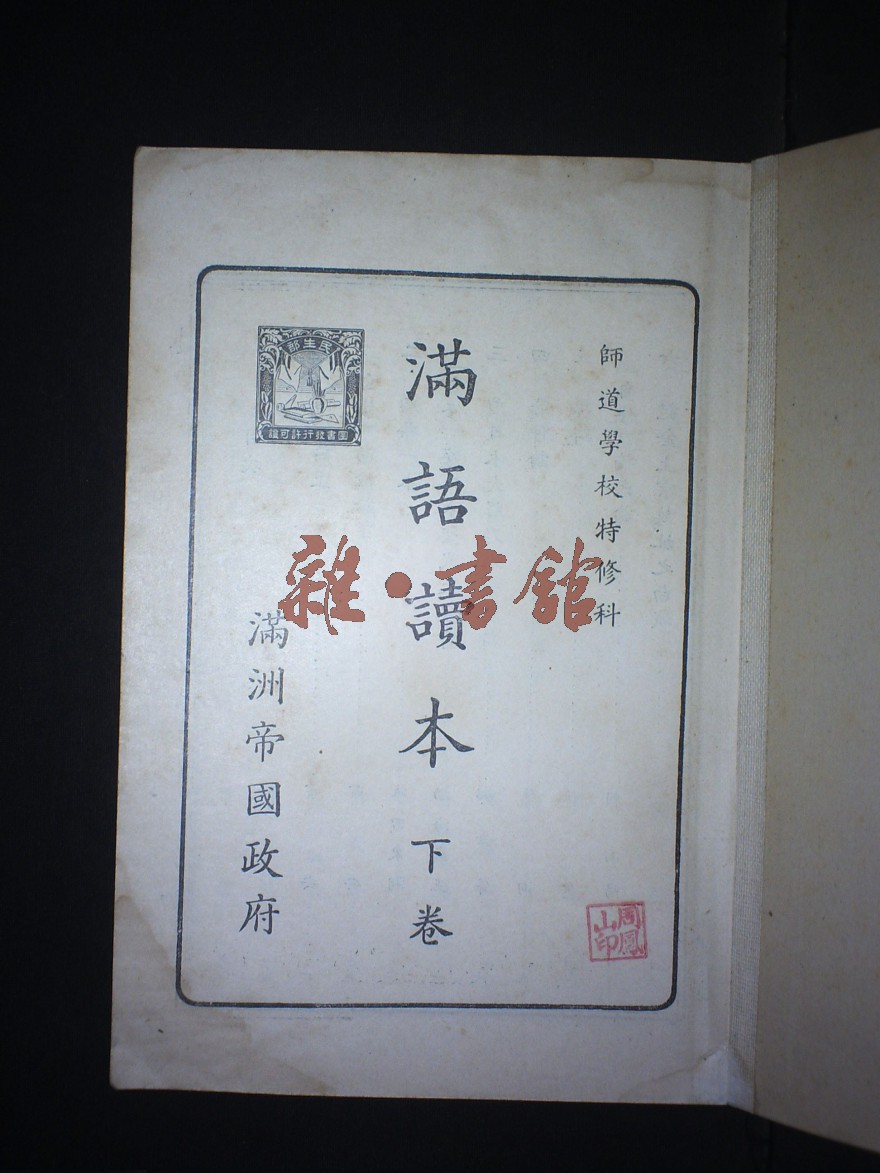 師道學校特修科
滿語讀本 下卷
滿洲帝國政府
民生部
圖書發行許可證
雜·書館
周鳳山印